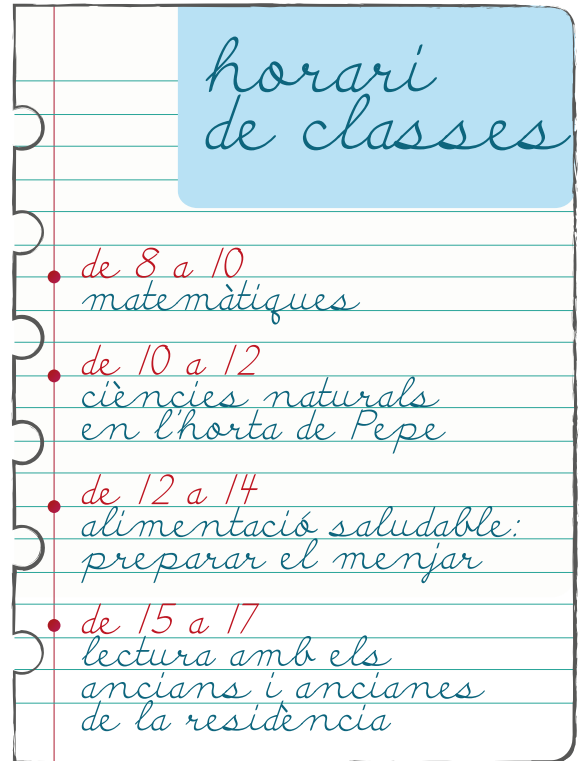 horari
de classes
de 8 a 10
matemàtiques
de 10 a 12
ciències naturals
en l'horta de Pepe
de 12 a 14
alimentació saludable:
preparar el menjar
de 15 a 17
lectura amb els
ancians i ancianes
de la residència